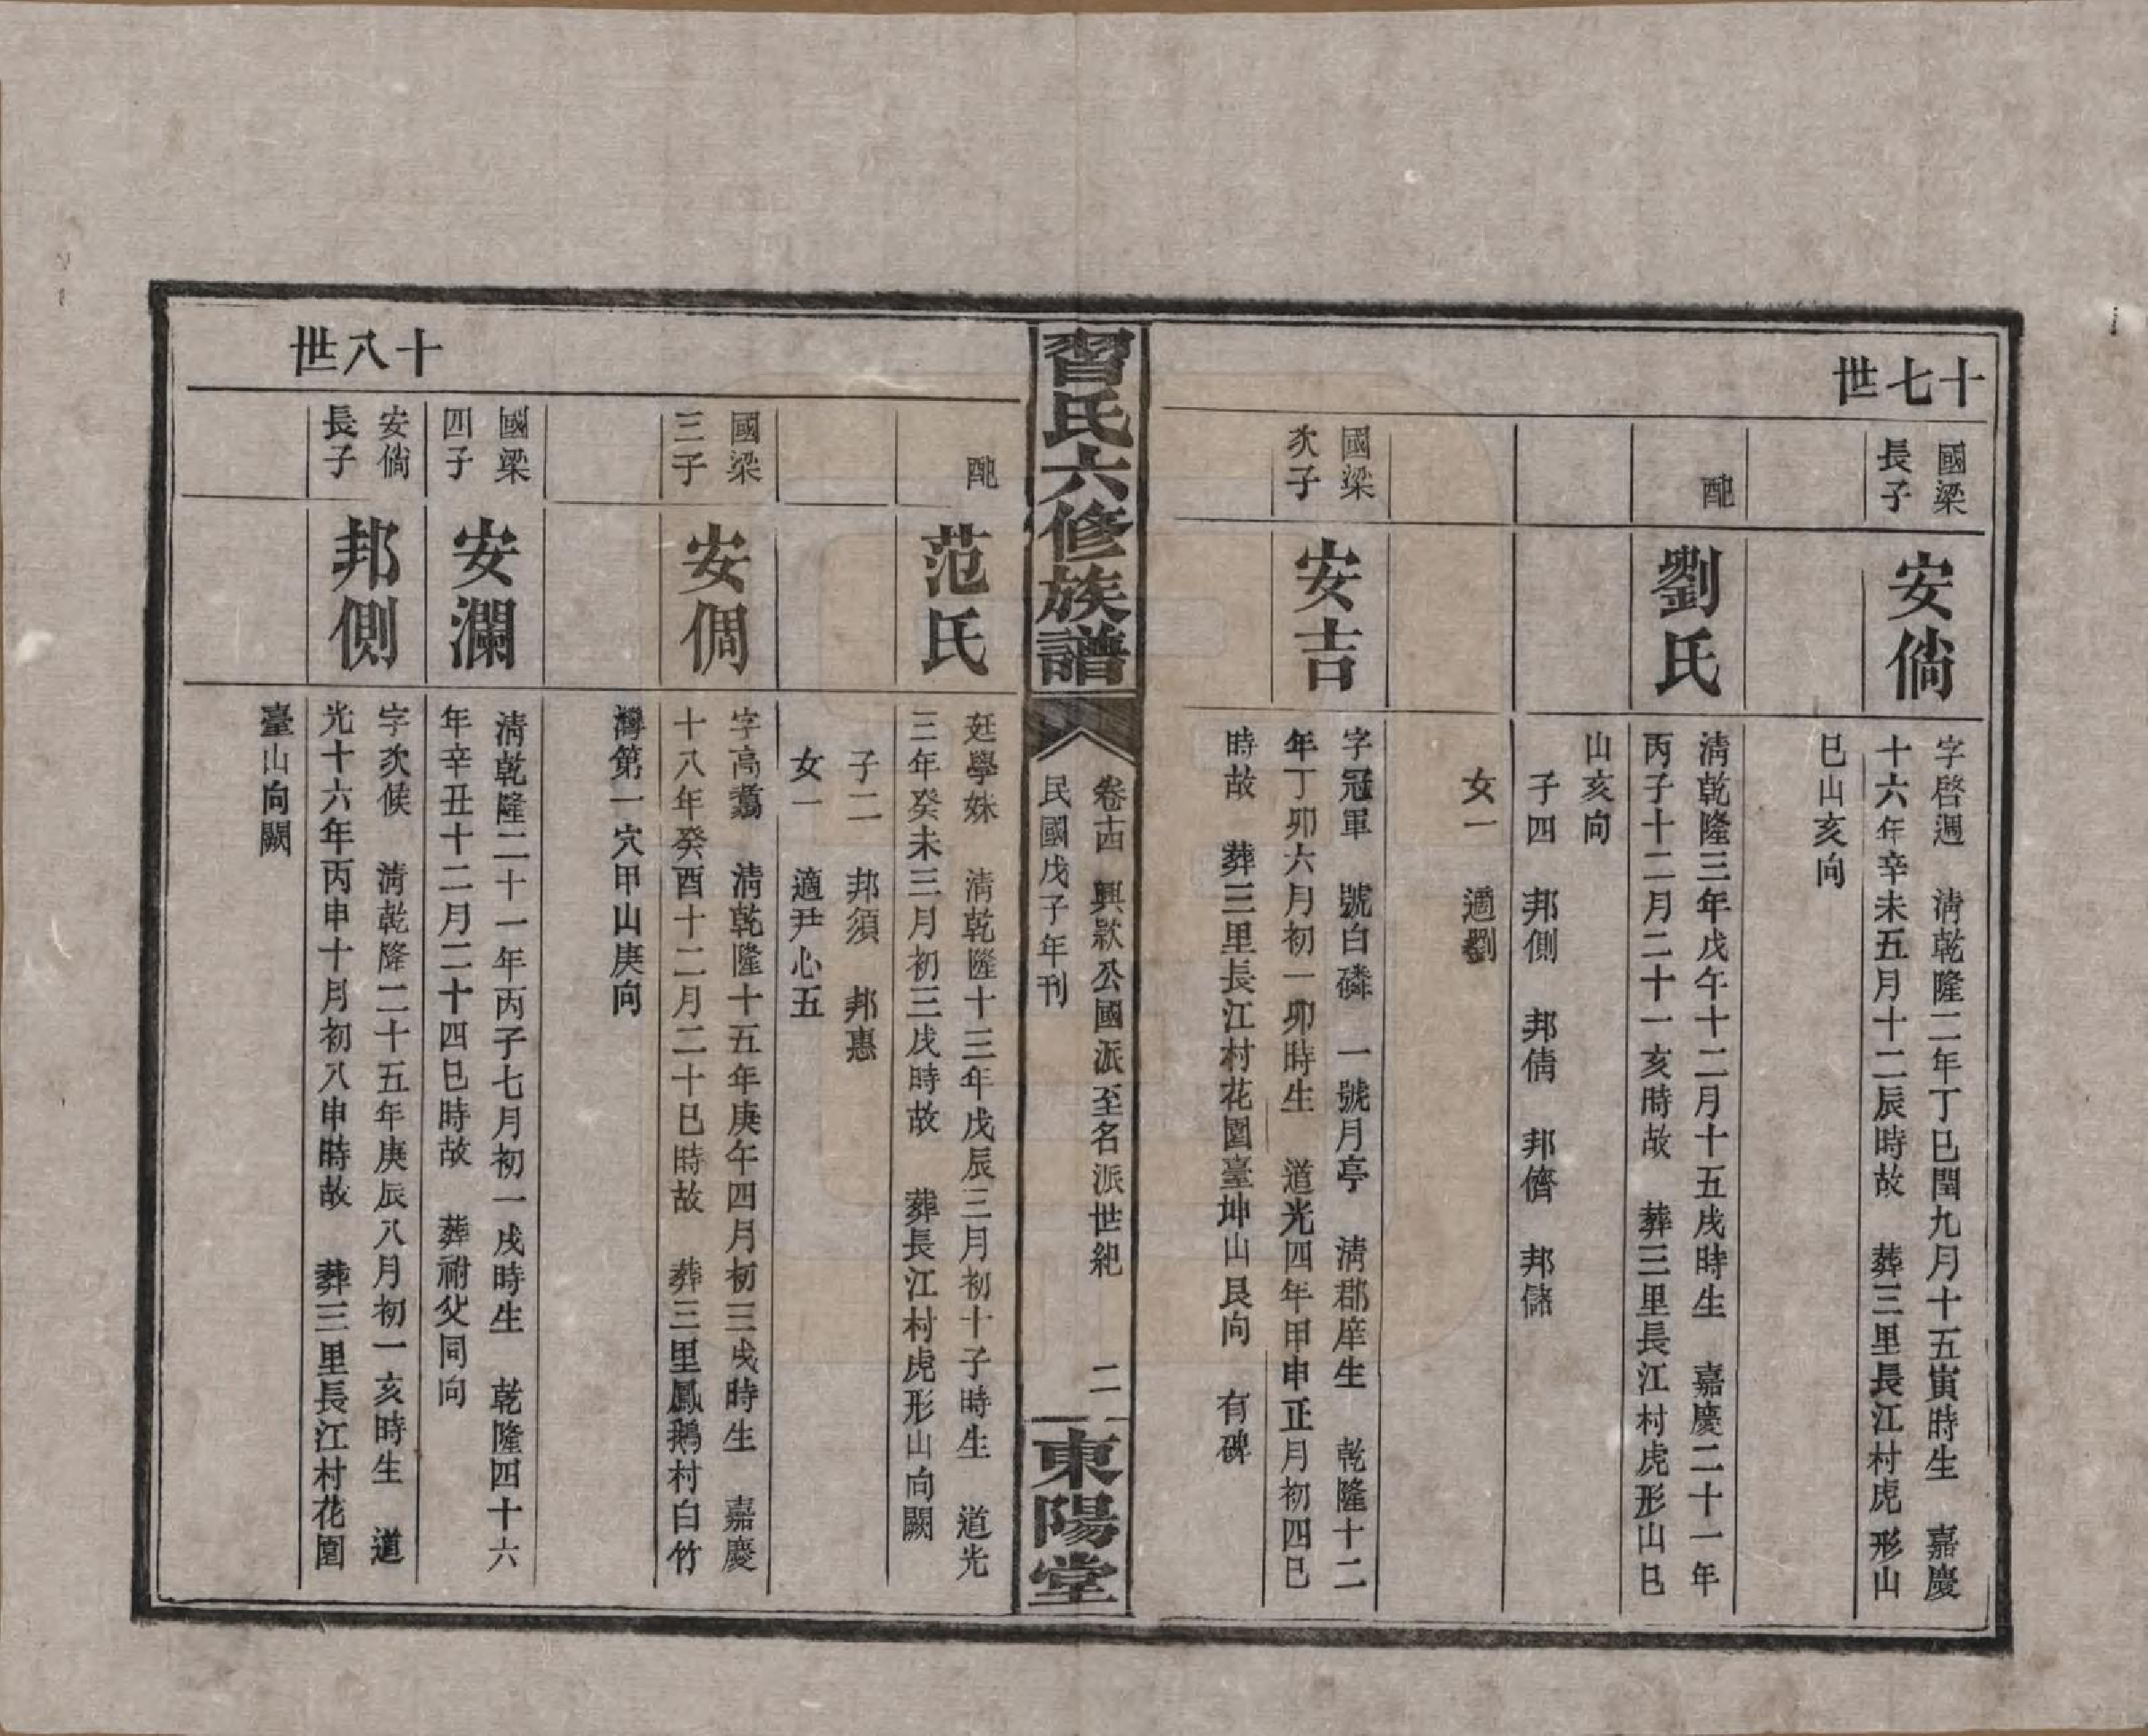 十七世
國梁
長子
安倘
字啓週　清乾隆二年丁巳閏九月十五寅時生　嘉慶
十六年辛未五月十二辰時故　葬三里長江村虎形山
巳山亥向
配
劉氏
清乾隆三年戊午十二月十五戌時生　嘉慶二十一年
丙子十二月二十一亥時故　葬三里長江村虎形山巳
山亥向
子四　邦側　邦倩　邦儕　邦儲
女一　適劉
國梁
次子
安吉
字冠軍　號白磷　一號月亭　清郡庠生　乾隆十二
年丁卯六月初一卯時生　道光四年甲申正月初四巳
時故　葬三里長江村花園臺坤山艮向　有碑
習氏六修族譜
卷十四　興欵公國派至名派世紀　二
民國戊子年刊
東陽堂
配
范氏
廷學妹　清乾隆十三年戊辰三月初十子時生　道光
三年癸未三月初三戌時故　葬長江村虎形山向闕
子二　邦須　邦惠
女一　適尹心五
國梁
三子
安倜
字高翥　清乾隆十五年庚午四月初三戌時生　嘉慶
十八年癸酉十二月二十巳時故　葬三里鳳鵝村白竹
灣第一穴甲山庚向
國梁
四子
安瀾
清乾隆二十一年丙子七月初一戌時生　乾隆四十六
年辛丑十二月二十四巳時故　葬祔父同向
十八世
安倘
長子
邦側
字次候　清乾隆二十五年庚辰八月初一亥時生　道
光十六年丙申十月初八申時故　葬三里長江村花園
臺山向闕